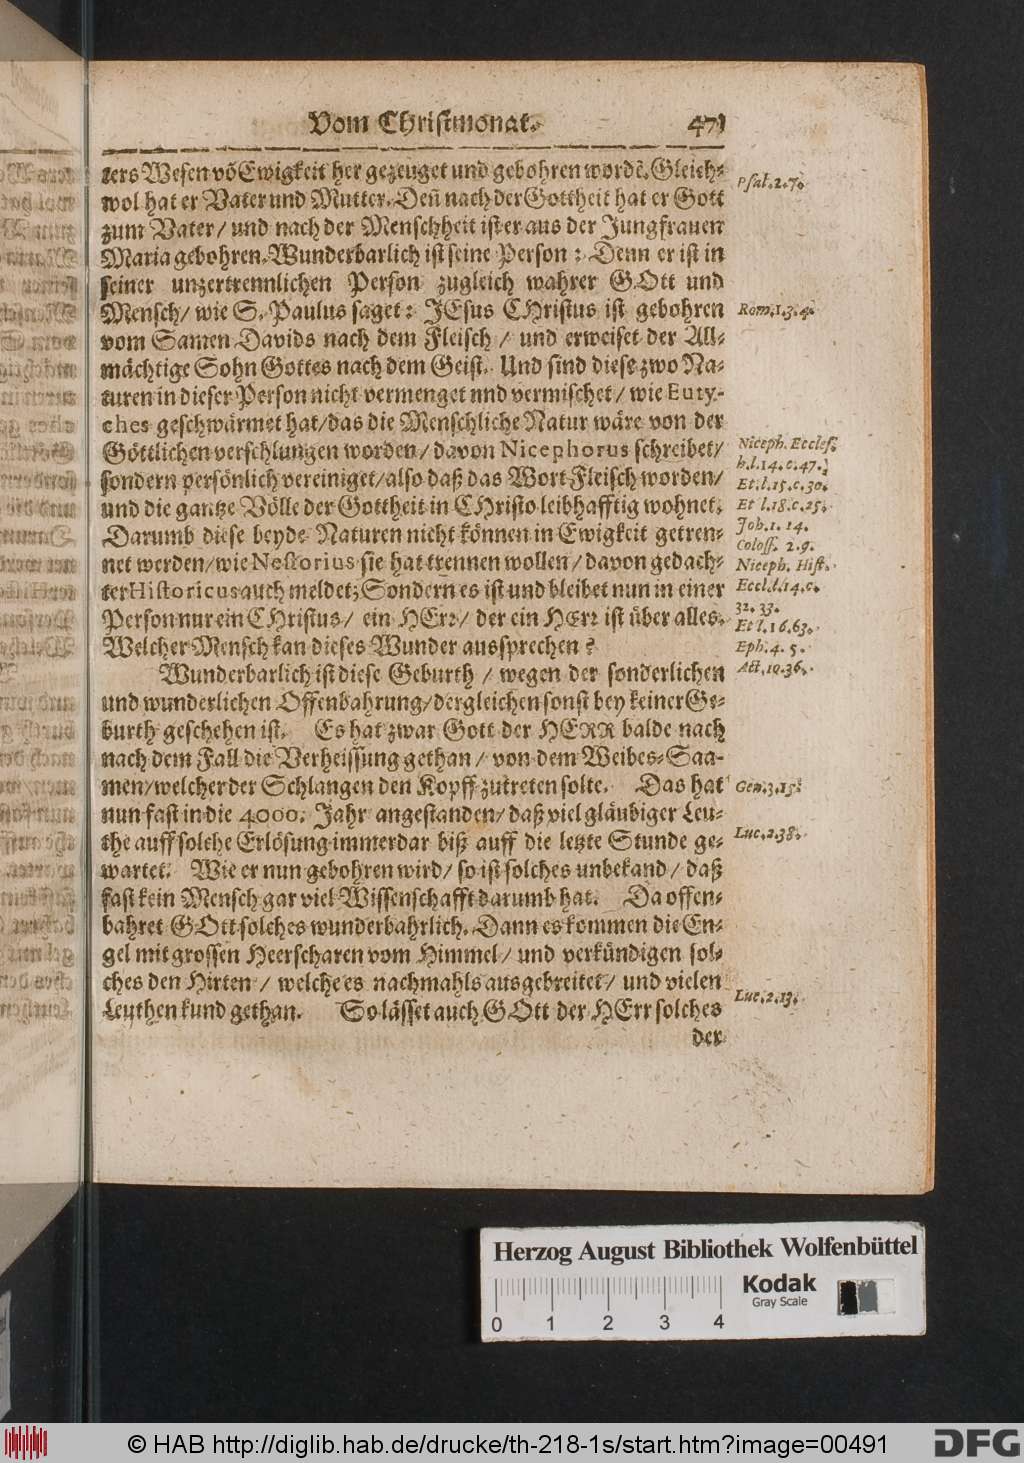 Vom Christmonat. 471
ters Wesen võ Ewigkeit her gezeuget und gebohren wordẽ. Gleich-
wol hat er Vater und Mutter. Deñ nach der Gottheit hat er Gott
zum Vater/ und nach der Menschheit ist er aus der Jungfrauen
Maria gebohren. Wunderbarlich ist seine Person: Denn er ist in
seiner unzertrennlichen Person zugleich wahrer GOtt und
Mensch/ wie S. Paulus saget: JEsus CHristus ist gebohren
vom Samen Davids nach dem Fleisch/ und erweiset der All-
mächtige Sohn Gottes nach dem Geist. Und sind diese zwo Na-
turen in dieser Person nicht vermenget nnd vermischet/ wie Euty-
ches geschwärmet hat/ das die Menschliche Natur wäre von der
Göttlichen verschlungen worden/ davon Nicephorus schreibet/
sondern persönlich vereiniget/ also daß das Wort Fleisch worden/
und die gantze Völle der Gottheit in CHristo leibhafftig wohnet.
Darumb diese beyde Naturen nicht können in Ewigkeit getren-
net werden/ wie Nestorius sie hat trennen wollen/ davon gedach-
ter Historicus auch meldet; Sondern es ist und bleibet nun in einer
Person nur ein CHristus/ ein HErr/ der ein HErr ist über alles.
Welcher Mensch kan dieses Wunder aussprechen?
Wunderbarlich ist diese Geburth/ wegen der sonderlichen
und wunderlichen Offenbahrung/ dergleichen sonst bey keiner Ge-
burth geschehen ist. Es hat zwar Gott der HERR balde nach
nach dem Fall die Verheissung gethan/ von dem Weibes-Saa-
men/ welcher der Schlangen den Kopff zutreten solte. Das hat
nun fast in die 4000. Jahr angestanden/ daß viel gläubiger Leu-
the auff solche Erlösung immerdar biß auff die letzte Stunde ge-
wartet. Wie er nun gebohren wird/ so ist solches unbekand/ daß
fast kein Mensch gar viel Wissenschafft darumb hat. Da offen-
bahret GOtt solches wunderbahrlich. Dann es kommen die En-
gel mit grossen Heerscharen vom Himmel/ und verkündigen sol-
ches den Hirten/ welche es nachmahls ausgebreitet/ und vielen
Leuthen kund gethan. So lässet auch GOtt der HErr solches
der
Psal. 2. 7.
Rom. 1. 3. 4.
Niceph. Eccles.
h. l. 14. c. 47.
Et. l. 15. c. 30.
Et l. 18. c. 25.
Joh. 1. 14.
Coloss. 2. 9.
Niceph. Hist.
Eccl. l. 14. c.
32. 33.
Et l. 16. 63.
Eph. 4. 5.
Act. 10. 36.
Gen. 3. 15.
Luc. 2. 38.
Luc. 2. 13.
Herzog August Bibliothek Wolfenbüttel
Kodak
Gray Scale
0 1 2 3 4
© HAB http://diglib.hab.de/drucke/th-218-1s/start.htm?image=00491
DFG